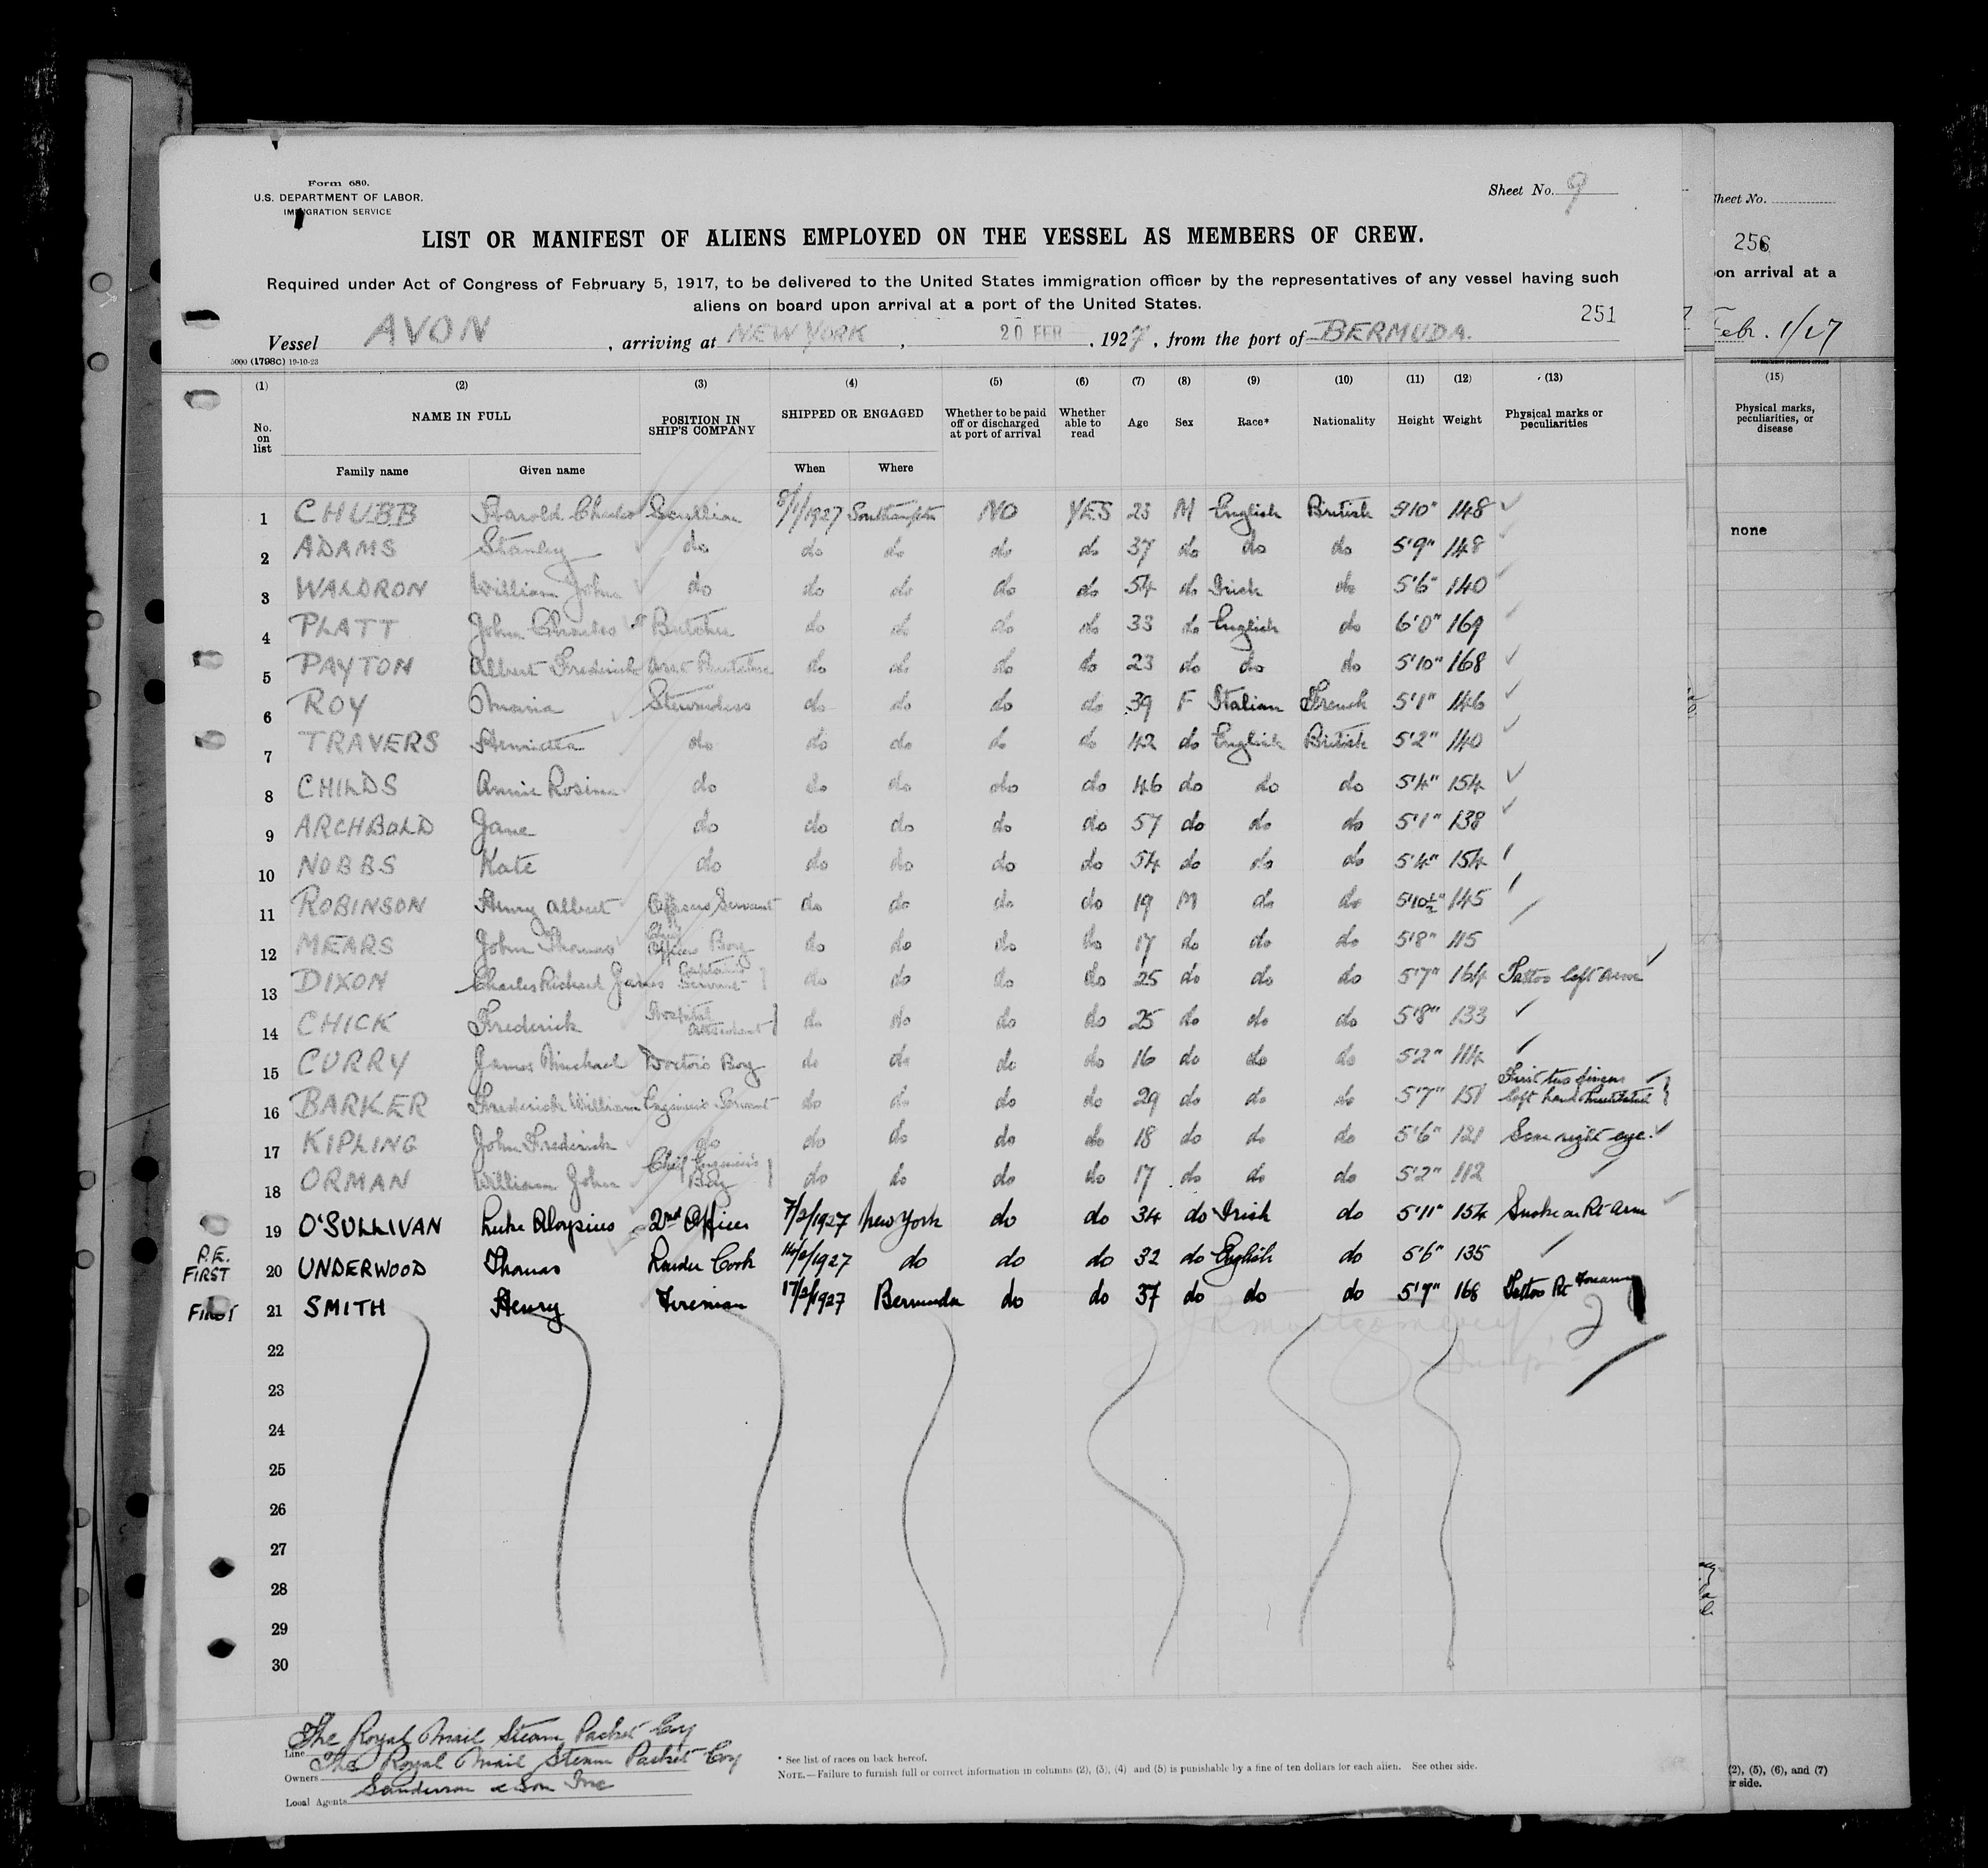 Form 680.
U.S. DEPARTMENT OF LABOR.
IMMIGRATION SERVICE
Sheet No. 9
LIST OR MANIFEST OF ALIENS EMPLOYED ON THE VESSEL AS MEMBERS OF CREW.
Required under Act of Congress of February 5, 1917, to be delivered to the United States immigration officer by the representatives of any vessel having such
aliens on board upon arrival at a port of the United States.
251
Vessel AVON, arriving at NEW YORK, 20 FEB, 1927, from the port of BERMUDA.
5000 (1798C) 19-10-23
(1) (2) (3) (4) (5) (6) (7) (8) (9) (10) (11) (12) (13)
No. on list NAME IN FULL POSITION IN SHIP'S COMPANY SHIPPED OR ENGAGED Whether to be paid off or discharged at port of arrival Whether able to read Age Sex Race* Nationality Height Weight Physical marks or peculiarities
Family name Given name When Where
1 CHUBB Harold Charles Scullion 8/1/1927 Southampton NO YES 23 M English British 5'10" 148
2 ADAMS Stanley do do do do do 37 do do do 5'9" 148
3 WALDRON William John do do do do do 54 do Irish do 5'6" 140
4 PLATT John Charles Butcher do do do do 33 do English do 6'0" 169
5 PAYTON Albert Frederick Asst Butcher do do do do 23 do do do 5'10" 168
6 ROY Maria Stewardess do do do do 39 F Italian French 5'1" 146
7 TRAVERS Henrietta do do do do do 42 do English British 5'2" 140
8 CHILDS Annie Rosina do do do do do 46 do do do 5'4" 154
9 ARCHBOLD Jane do do do do do 57 do do do 5'1" 138
10 NOBBS Kate do do do do do 54 do do do 5'4" 154
11 ROBINSON Henry Albert Officers Servant do do do do 19 M do do 5'10½" 145
12 MEARS John Thomas Chief Officers Boy do do do do 17 do do do 5'8" 115
13 DIXON Charles Richard James Captains Servant do do do do 25 do do do 5'7" 164 Tattoo left arm
14 CHICK Frederick Hospital Attendant do do do do 25 do do do 5'8" 133
15 CURRY James Michael Doctors Boy do do do do 16 do do do 5'2" 114
16 BARKER Frederick William Engineers Servant do do do do 29 do do do 5'7" 151 First two fingers left hand
17 KIPLING John Frederick do do do do do 18 do do do 5'6" 121 Scar right eye.
18 ORMAN William John Chief Engineers Boy do do do do 17 do do do 5'2" 112
19 O'SULLIVAN Luke Aloysius 2nd Officer 7/2/1927 New York do do 34 do Irish do 5'11" 154 Snake on Rt Arm
P.E. FIRST 20 UNDERWOOD Thomas Larder Cook 14/2/1927 do do do 32 do English do 5'6" 135
FIRST 21 SMITH Henry Fireman 17/2/1927 Bermuda do do 37 do do do 5'9" 168 Tattoo Rt Forearm
22
23
24
25
26
27
28
29
30
Line The Royal Mail Steam Packet Coy
Owners The Royal Mail Steam Packet Coy
Local Agents Sanderson & Son Inc
* See list of races on back hereof.
NOTE.—Failure to furnish full or correct information in columns (2), (3), (4) and (5) is punishable by a fine of ten dollars for each alien. See other side.
Sheet No.
256
on arrival at a
Febr. 1/27
(15)
Physical marks, peculiarities, or disease
none
(2), (5), (6), and (7)
r side.